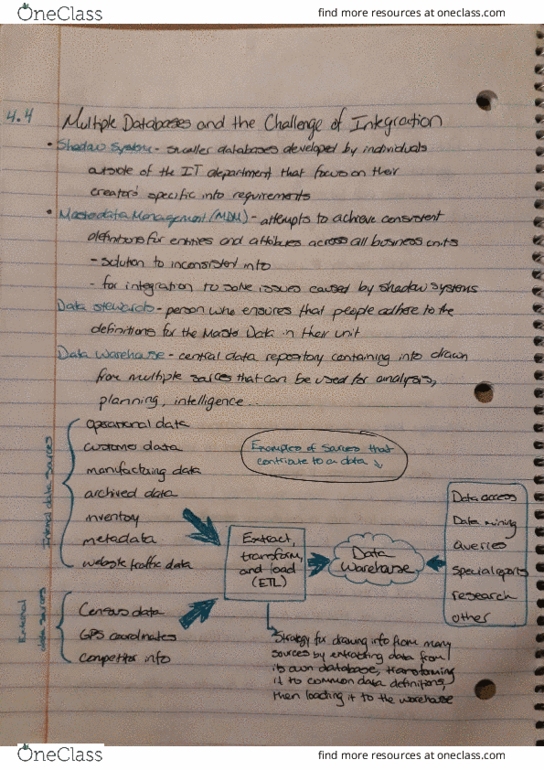 OneClass
find more resources at oneclass.com
4.4 Multiple Databases and the Challenge of Integration
• Shadow System - smaller databases developed by individuals
outside of the IT department that focus on their
creators' specific info requirements
• Master data Management (MDM) - attempts to achieve consistent
definitions for entities and attibues across all business units
- solution to inconsistent info
- for integration to solve issues caused by shadow systems
Data stewards - person who ensures that people adhere to the
definitions for the Master Data in their unit
Data Warehouse - central data repository containing info drawn
from multiple sources that can be used for analysis,
planning, intelligence...
Internal data sources
operational data
customer data
manufacturing data
archived data
inventory
metadata
website traffic data
External data sources
Census data
GPS coordinates
competitor info
Examples of sources that
contribute to a data ↓
Extract,
transform,
and load
(ETL)
Data
Warehouse
Data access
Data mining
Queries
special reports
research
other
Strategy for drawing info from many
sources by extracting data from
its own database, transforming
it to common data definitions,
then loading it to the warehouse
OneClass
find more resources at oneclass.com